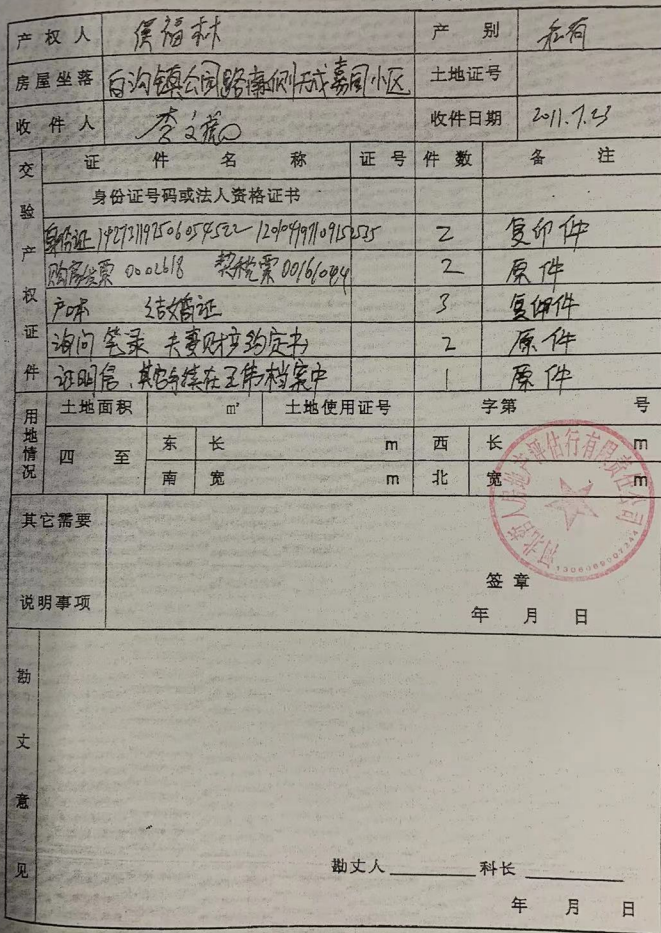 产权人 侯福林 产别 私有
房屋坐落 白沟镇公园路南侧天成嘉园小区 土地证号
收件人 李文 收件日期 2011.7.23
交验产权证件
证件名称 证号 件数 备注
身份证号码或法人资格证书
身份证 2 复印件
购房发票 0002618 契税票 2 原件
户口本 结婚证 3 复印件
询问笔录 夫妻财产约定书 2 原件
证明信、其它手续在王伟档案中 1 原件
用地情况
土地面积 ㎡ 土地使用证号 字第 号
四至 东 长 m 西 长 m
南 宽 m 北 宽 m
其它需要
说明事项
房地产评估行有限责任公司
签章
年 月 日
勘丈意见
勘丈人 科长
年 月 日